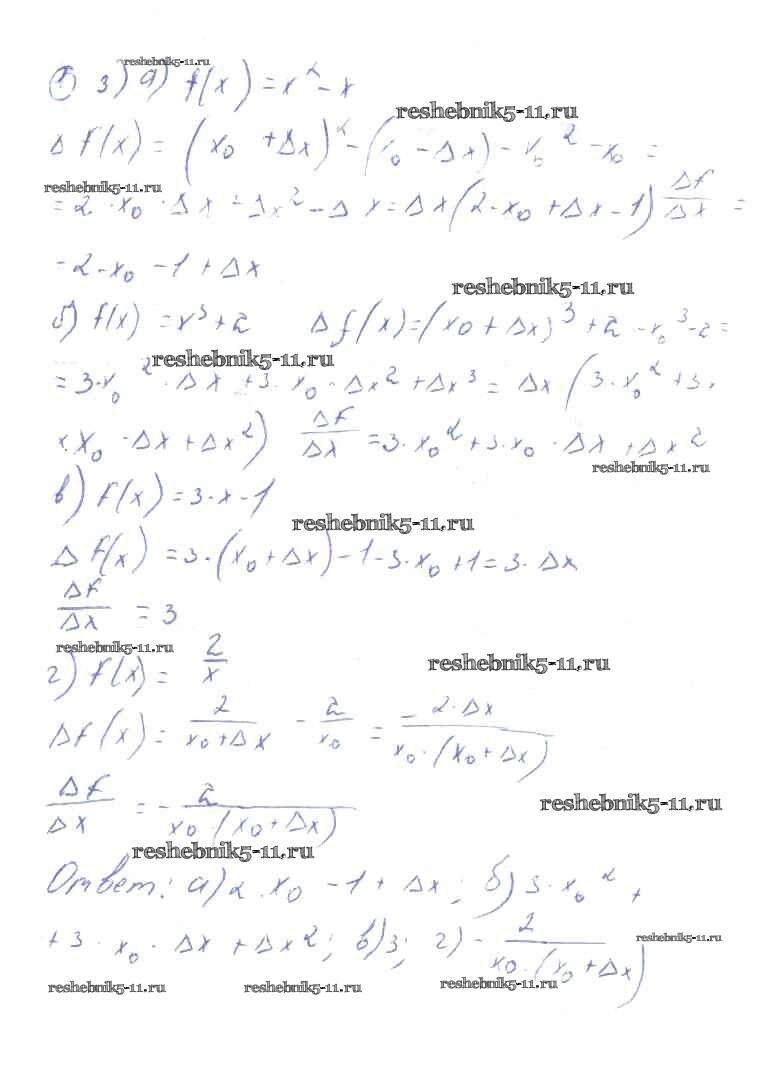 reshebnik5-11.ru
① 3) а) f(x) = x² - x
reshebnik5-11.ru
Δ f(x) = (x₀ + Δx)² - (x₀ - Δx) - x₀² - x₀ =
reshebnik5-11.ru
= 2 · x₀ · Δx + Δx² - Δx = Δx(2 · x₀ + Δx - 1) Δf/Δx =
= 2 · x₀ - 1 + Δx
reshebnik5-11.ru
б) f(x) = x³ + 2 Δ f(x) = (x₀ + Δx)³ + 2 - x₀³ - 2 =
reshebnik5-11.ru
= 3 · x₀² · Δx + 3 · x₀ · Δx² + Δx³ = Δx (3 · x₀² + 3 ·
· x₀ · Δx + Δx²) Δf/Δx = 3 · x₀² + 3 · x₀ · Δx + Δx²
reshebnik5-11.ru
в) f(x) = 3 · x - 1
reshebnik5-11.ru
Δ f(x) = 3 · (x₀ + Δx) - 1 - 3 · x₀ + 1 = 3 · Δx
Δf/Δx = 3
reshebnik5-11.ru
г) f(x) = 2/x
reshebnik5-11.ru
Δf(x) = 2/(x₀ + Δx) - 2/x₀ = - 2 · Δx/(x₀ · (x₀ + Δx))
Δf/Δx = - 2/(x₀ · (x₀ + Δx))
reshebnik5-11.ru
reshebnik5-11.ru
Ответ: а) 2 · x₀ - 1 + Δx; б) 3 · x₀² +
+ 3 · x₀ · Δx + Δx²; в) 3; г) - 2/(x₀ · (x₀ + Δx))
reshebnik5-11.ru
reshebnik5-11.ru reshebnik5-11.ru reshebnik5-11.ru